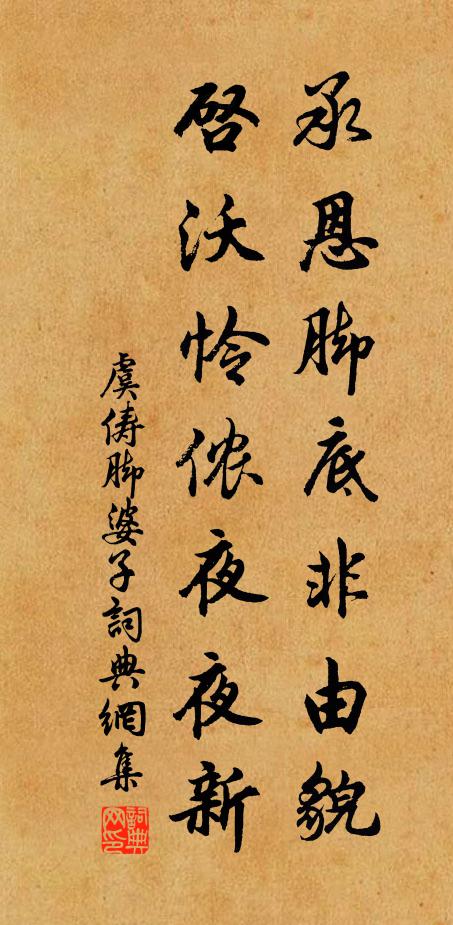 承恩脚底非由貌
启沃怜侬夜夜新
虞俦脚婆子詞典網集
詞典网印